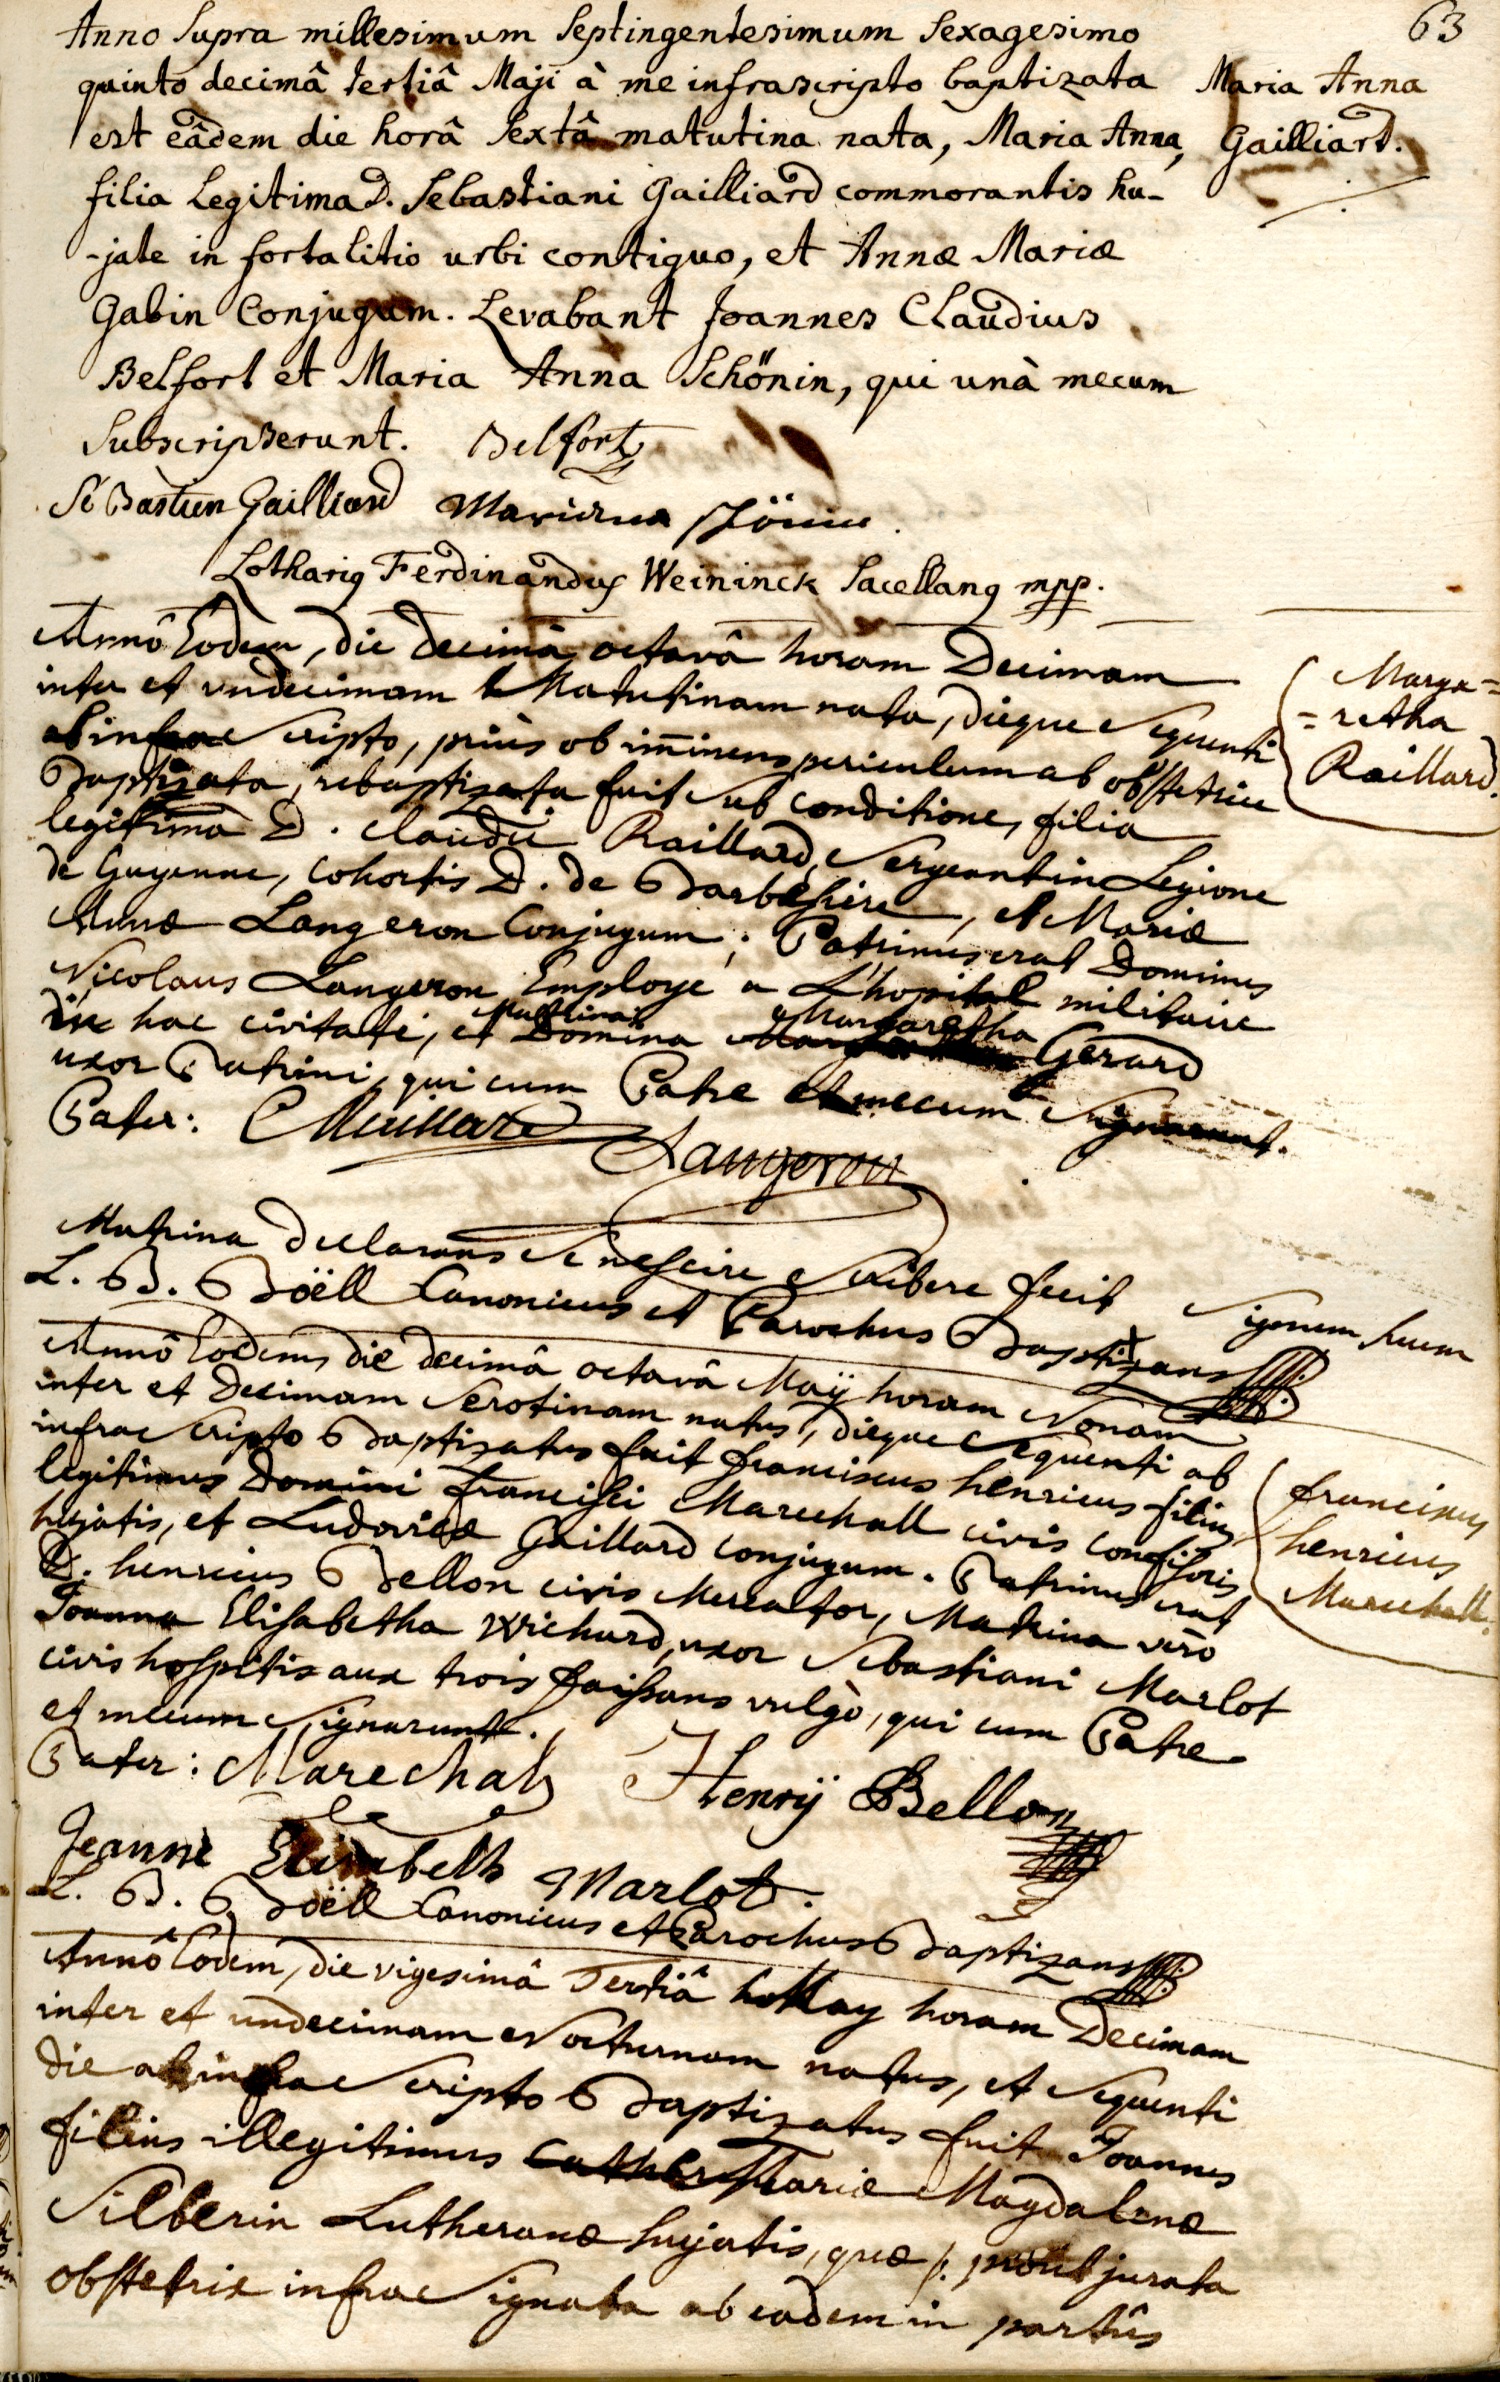 63
Anno supra millesimum septingentesimum sexagesimo
quinto decimâ tertiâ Maji à me infrascripto baptizata
est eâdem die horâ sextâ matutina nata, Maria Anna,
filia legitima D. Sebastiani Gailliard commorantis hu-
-jate in fortalitio urbi contiguo, et Annæ Mariæ
Gabin Conjugum. Levabant Joannes Claudius
Belfort et Maria Anna Schönin, qui unà mecum
subscripserunt. Belfort
Maria Anna
Gailliard.
Sebastien Gailliard Marianna
Lotharig Ferdinandus Weininck Sacellang mpp.
Annô Eodem, die decimâ octavâ horam Decimam
inter et undecimam Matutinam nata, dieque sequenti
ab infrascripto, priùs ob iminens periculum ab obstetrice
baptizata, rebaptizata fuit sub conditione, filia
legitima D. Claudii Raillard, sergeant in Legione
de Guyenne, Cohortis D. de Barbesiere, et Mariæ
Annæ Langeron Conjugum; Patrinus erat Dominus
Nicolaus Langeron Employe a L'hopital militaire
in hac civitate, et Matrina Domina Margaretha Gerard
uxor Patrini, qui cum Patre et mecum signarunt.
Marga=
=retha
Raillard.
Pater: CRaillard
Langeron
Matrina declarans se nescire scribere fecit signum suum
+
L. B. Böell Canonicus et Parochus Baptizans
Annô Eodem, die decimâ octavâ Maÿ horam Nonam
inter et Decimam Serotinam natus, dieque sequenti ab
infrascripto Baptizatus fuit franciscus henricus filius
legitimus Domini francisci Marechall civis
hujatis, et Ludovicæ Gaillard conjugum. Patrinus erat
D. henricus Bellon civis Mercator, Matrina verò
Joanna Elisabetha Wrichard, uxor Sebastiani Marlot
civis hospitis aux trois faissans vulgò, qui cum Patre
et mecum signarunt.
franciscus
henricus
Marechall.
Pater: Marechal
Henrÿ Bellon
Jeanne Elisabeth Marlot.
L. B. Böell Canonicus et Parochus Baptizans
Annô Eodem, die vigesimâ Tertiâ May horam Decimam
inter et undecimam Nocturnam natus, et sequenti
die ab infrascripto Baptizatus fuit Joannes
filius illegitimus Mariæ Magdalenæ
Silberin Lutheranæ hujatis, quæ /: prout jurata
obstetrix infrasignata ab eadem in partûs